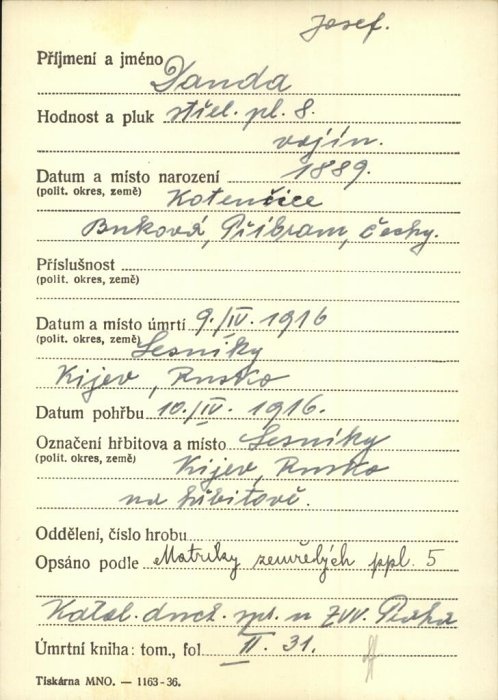 Josef.
Příjmení a jméno Danda
Hodnost a pluk střel. pl. 8.
vojín.
Datum a místo narození 1889.
(polit. okres, země) Kotenčice
Buková, Příbram, Čechy.
Příslušnost
(polit. okres, země)
Datum a místo úmrtí 9./IV. 1916
(polit. okres, země) Lesniky
Kijev, Rusko
Datum pohřbu 10./IV. 1916.
Označení hřbitova a místo Lesníky
(polit. okres, země) Kijev, Rusko
na hřbitově.
Oddělení, číslo hrobu
Opsáno podle Matriky zemřelých ppl. 5
Katol. duch. spr. u ZVV. Praha
Úmrtní kniha: tom., fol. II. 31.
Tiskárna MNO. — 1163-36.